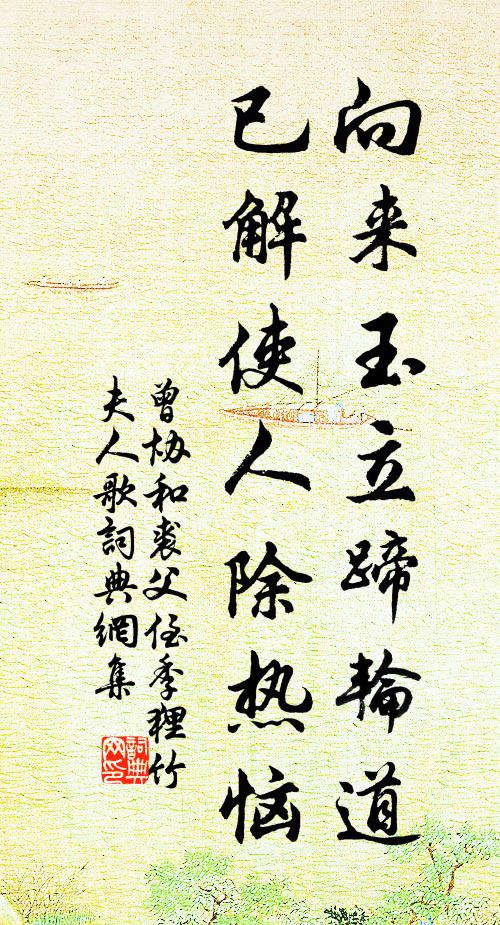 向来玉立蹄轮道
已解使人除热恼
曾协和裘父侄季狸竹
夫人歌詞典網集
詞典